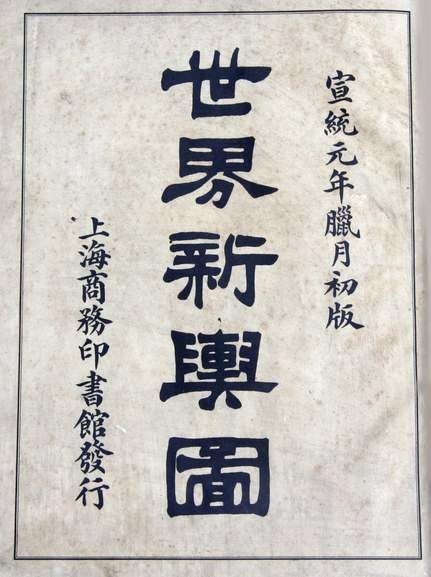 宣統元年臘月初版
世界新輿圖
上海商務印書館發行